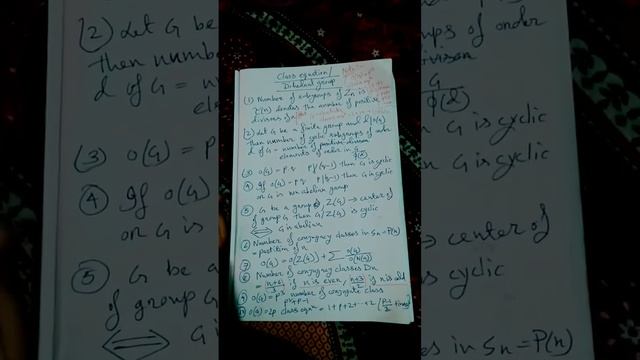 Class equation/
Dihedral group
(1) Number of subgroups of Zn is
τ(n) denotes the number of positive
divisors of n
(2) Let G be a finite group and d|O(G)
then number of cyclic subgroups of order
d of G = number of
elements of order in G
φ(d)
(3) O(G) = p q p∤(q-1) then G is cyclic
(4) If O(G) = p q p|q-1 then G is cyclic
or G is non abelian group
(5) G be a group, Z(G) → center of
of group G then G/Z(G) is cyclic
⟺ G is abelian
(6) Number of conjugacy classes in Sn = P(n)
= partition of n
(7) O(G) = O(Z(G)) + Σ O(G)/O(N(a))
(8) Number of conjugacy classes Dn
= n+6/2 if n is even, n+3/2 if n is odd
(9) O(G) = p³ number of conjugate class
p²+p-1
(10) O(G) = 2p class eqnⁿ = 1+p+2+...+2
(2) Let G be
then numbe
d of G = n
(3) O(G) = P
(4) If O(G)
or G is
(5) G be a
of group G
⟺ G i
groups of order
G
φ(d)
n G is cyclic
n G is cyclic
→ center of
s cyclic
ses in Sn = P(n)